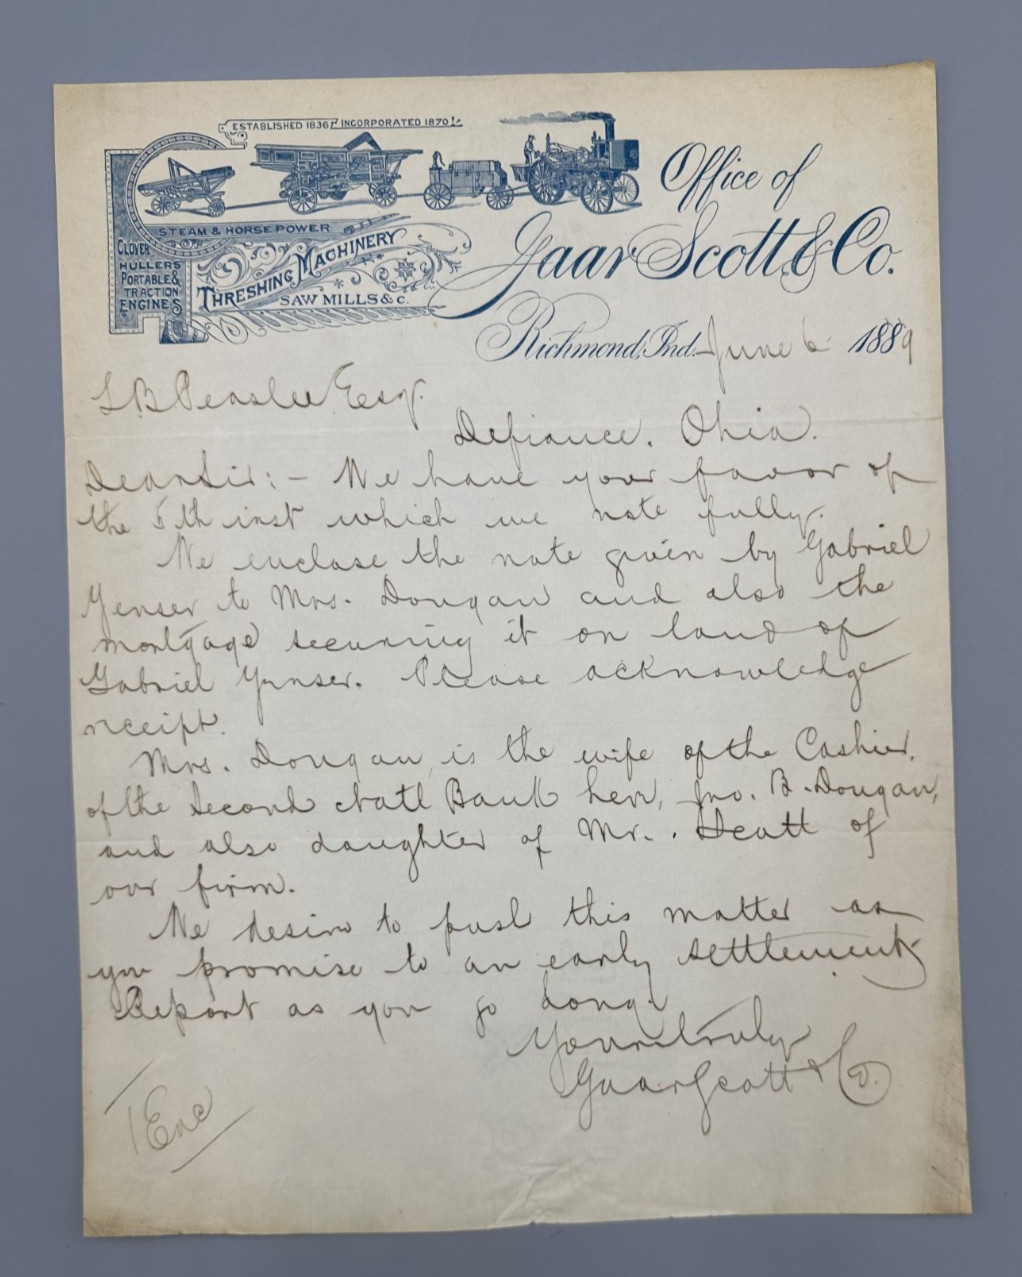 ESTABLISHED 1836 INCORPORATED 1870
STEAM & HORSE POWER
THRESHING MACHINERY
SAW MILLS & C.
CLOVER
HULLERS
PORTABLE &
TRACTION
ENGINES
Office of
Gaar Scott & Co.
Richmond, Ind. June 6 1889
L B Peaslee Esq.
Defiance. Ohio.
Dear Sir:- We have your favor of
the 5th inst which we note fully.
We enclose the note given by Gabriel
Yenser to Mrs. Dougan and also the
mortgage securing it on land of
Gabriel Yenser. Please acknowledge
receipt.
Mrs. Dougan, is the wife of the Cashier,
of the Second Natl Bank here, Jno. B. Dougan,
and also daughter of Mr. Scott of
our firm.
We desire to push this matter as
you promise to an early settlement
Report as you go along.
Yours truly
Gaar Scott & Co.
1 Enc